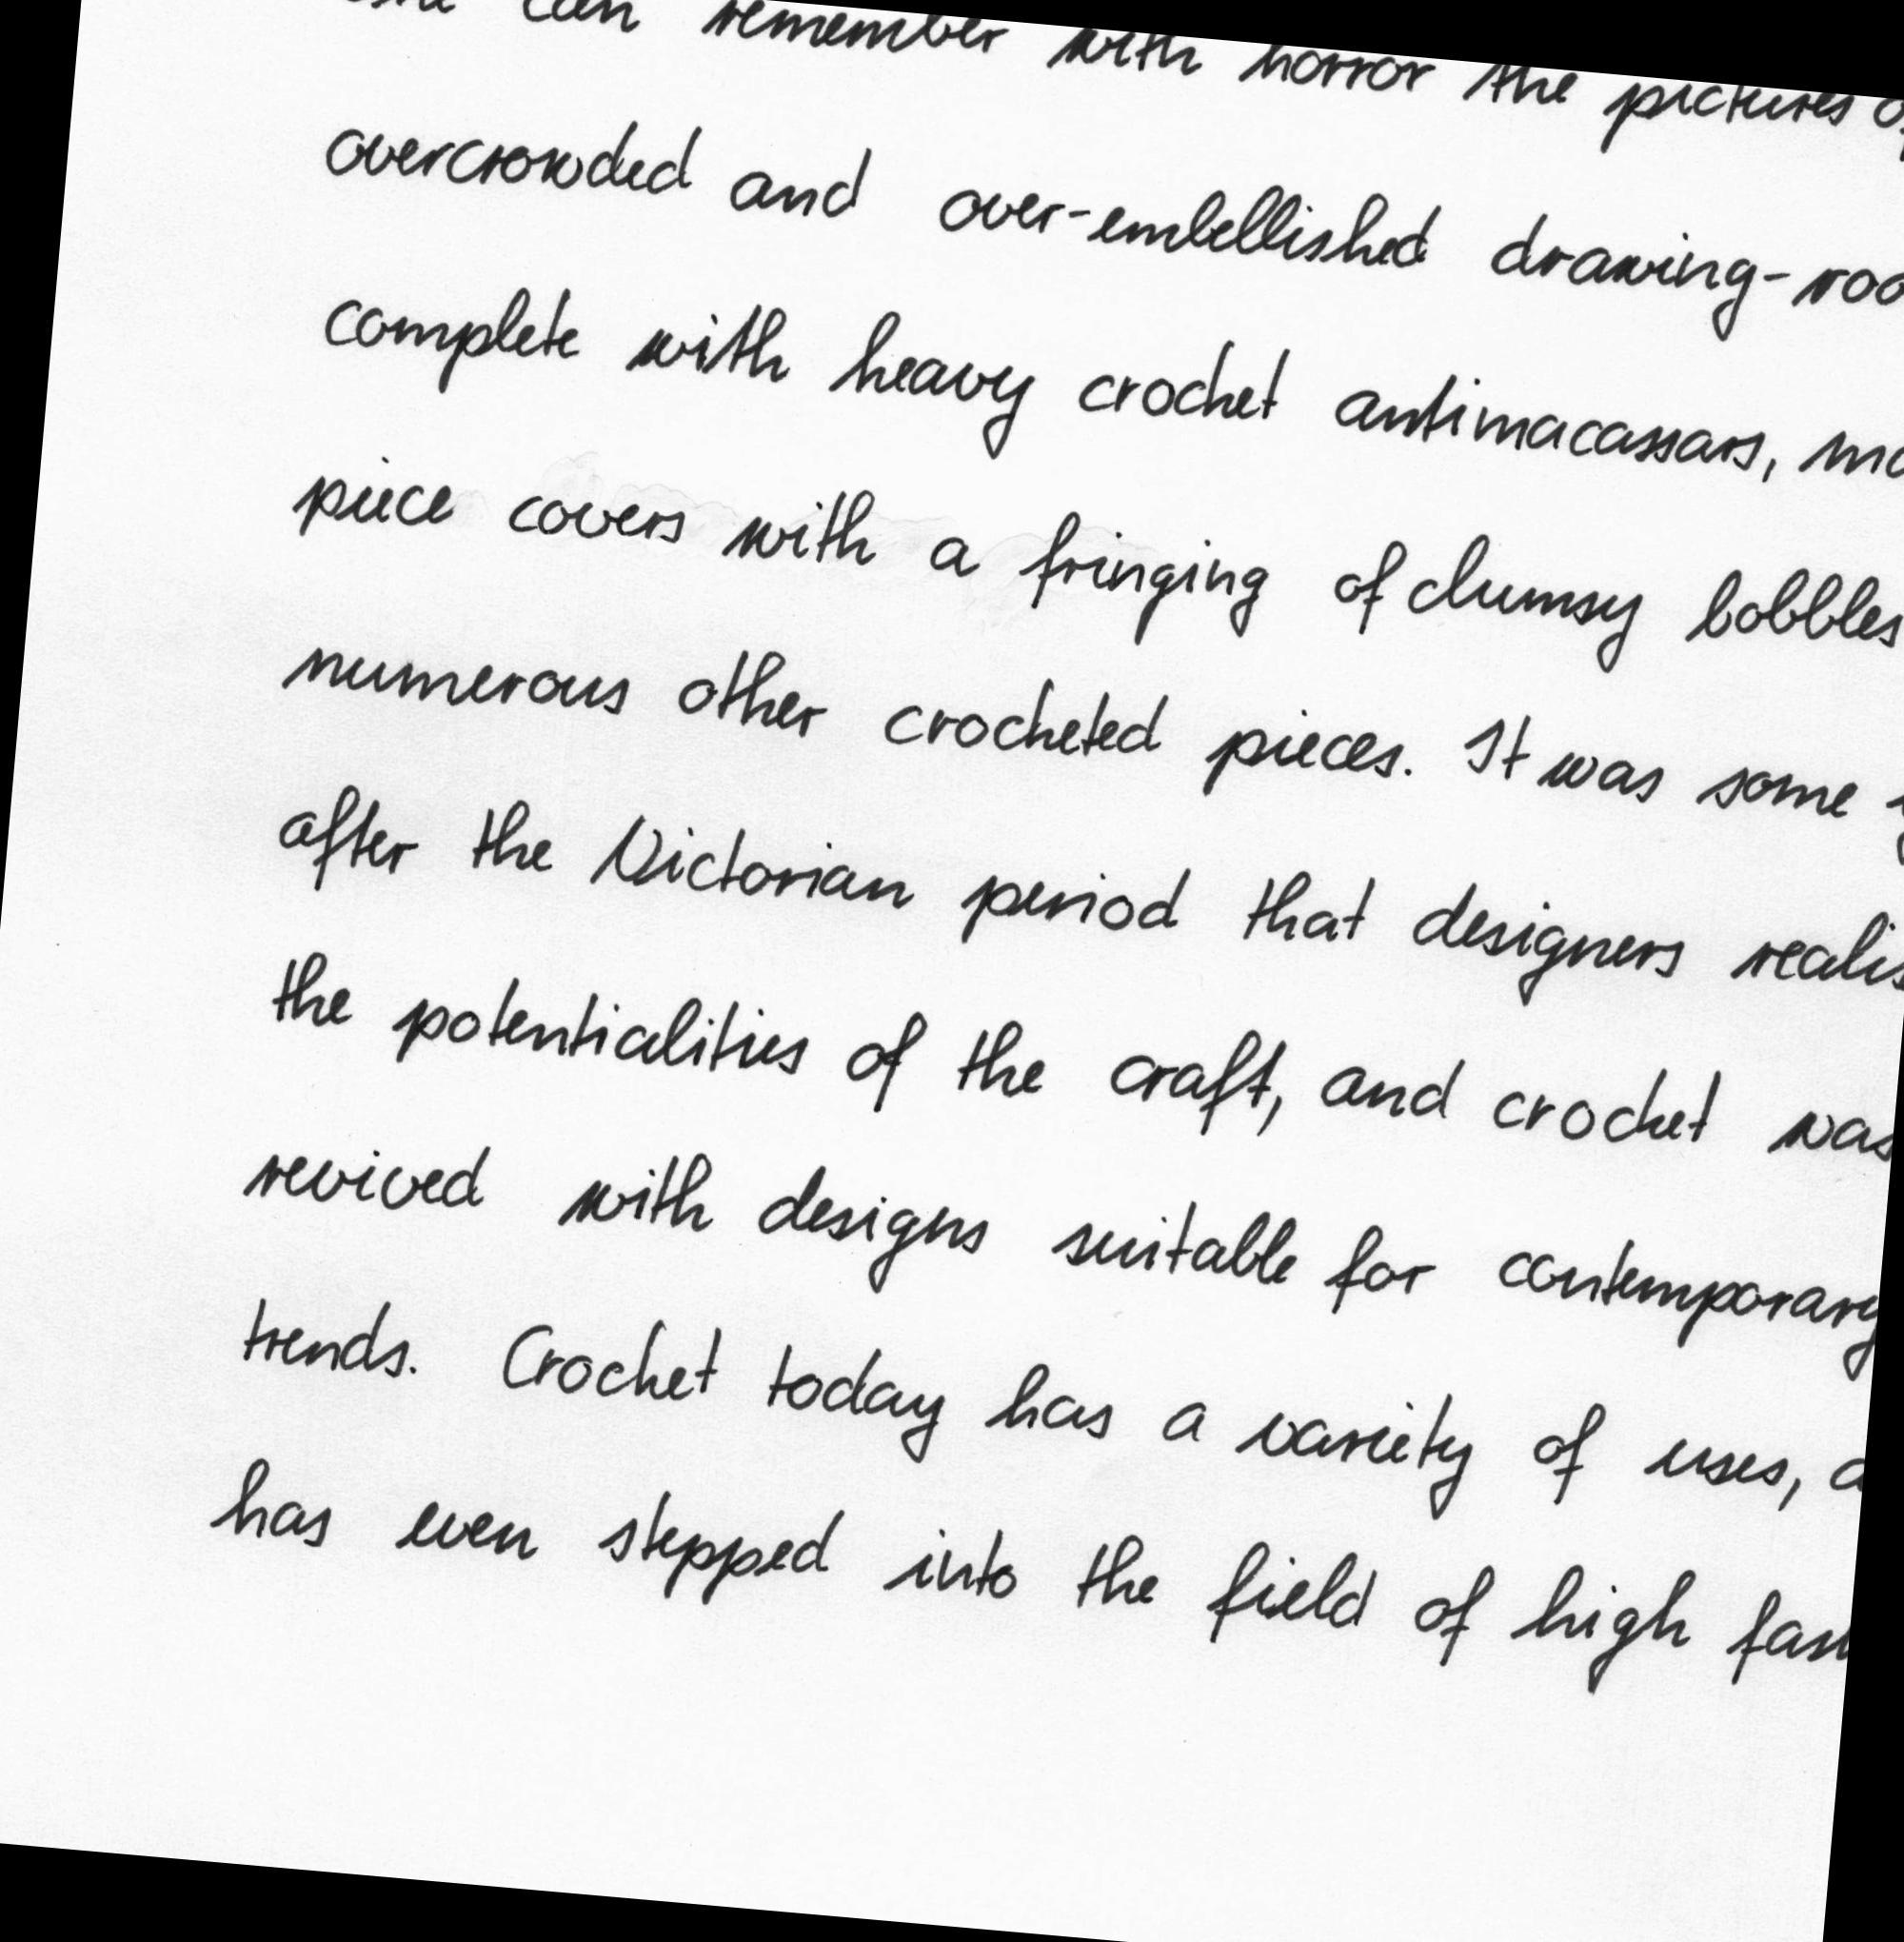 can remember with horror the pictures
overcrowded and over-embellished
complete with heavy crochet antimacassars,
piece covers with a fringing of clumsy bobbles
numerous other crocheted pieces. It was some
after the Victorian period that designers
the potentialities of the craft, and crochet was
revived with designs suitable for contemporary
trends. Crochet today has a variety of uses,
has even stepped into the field of high